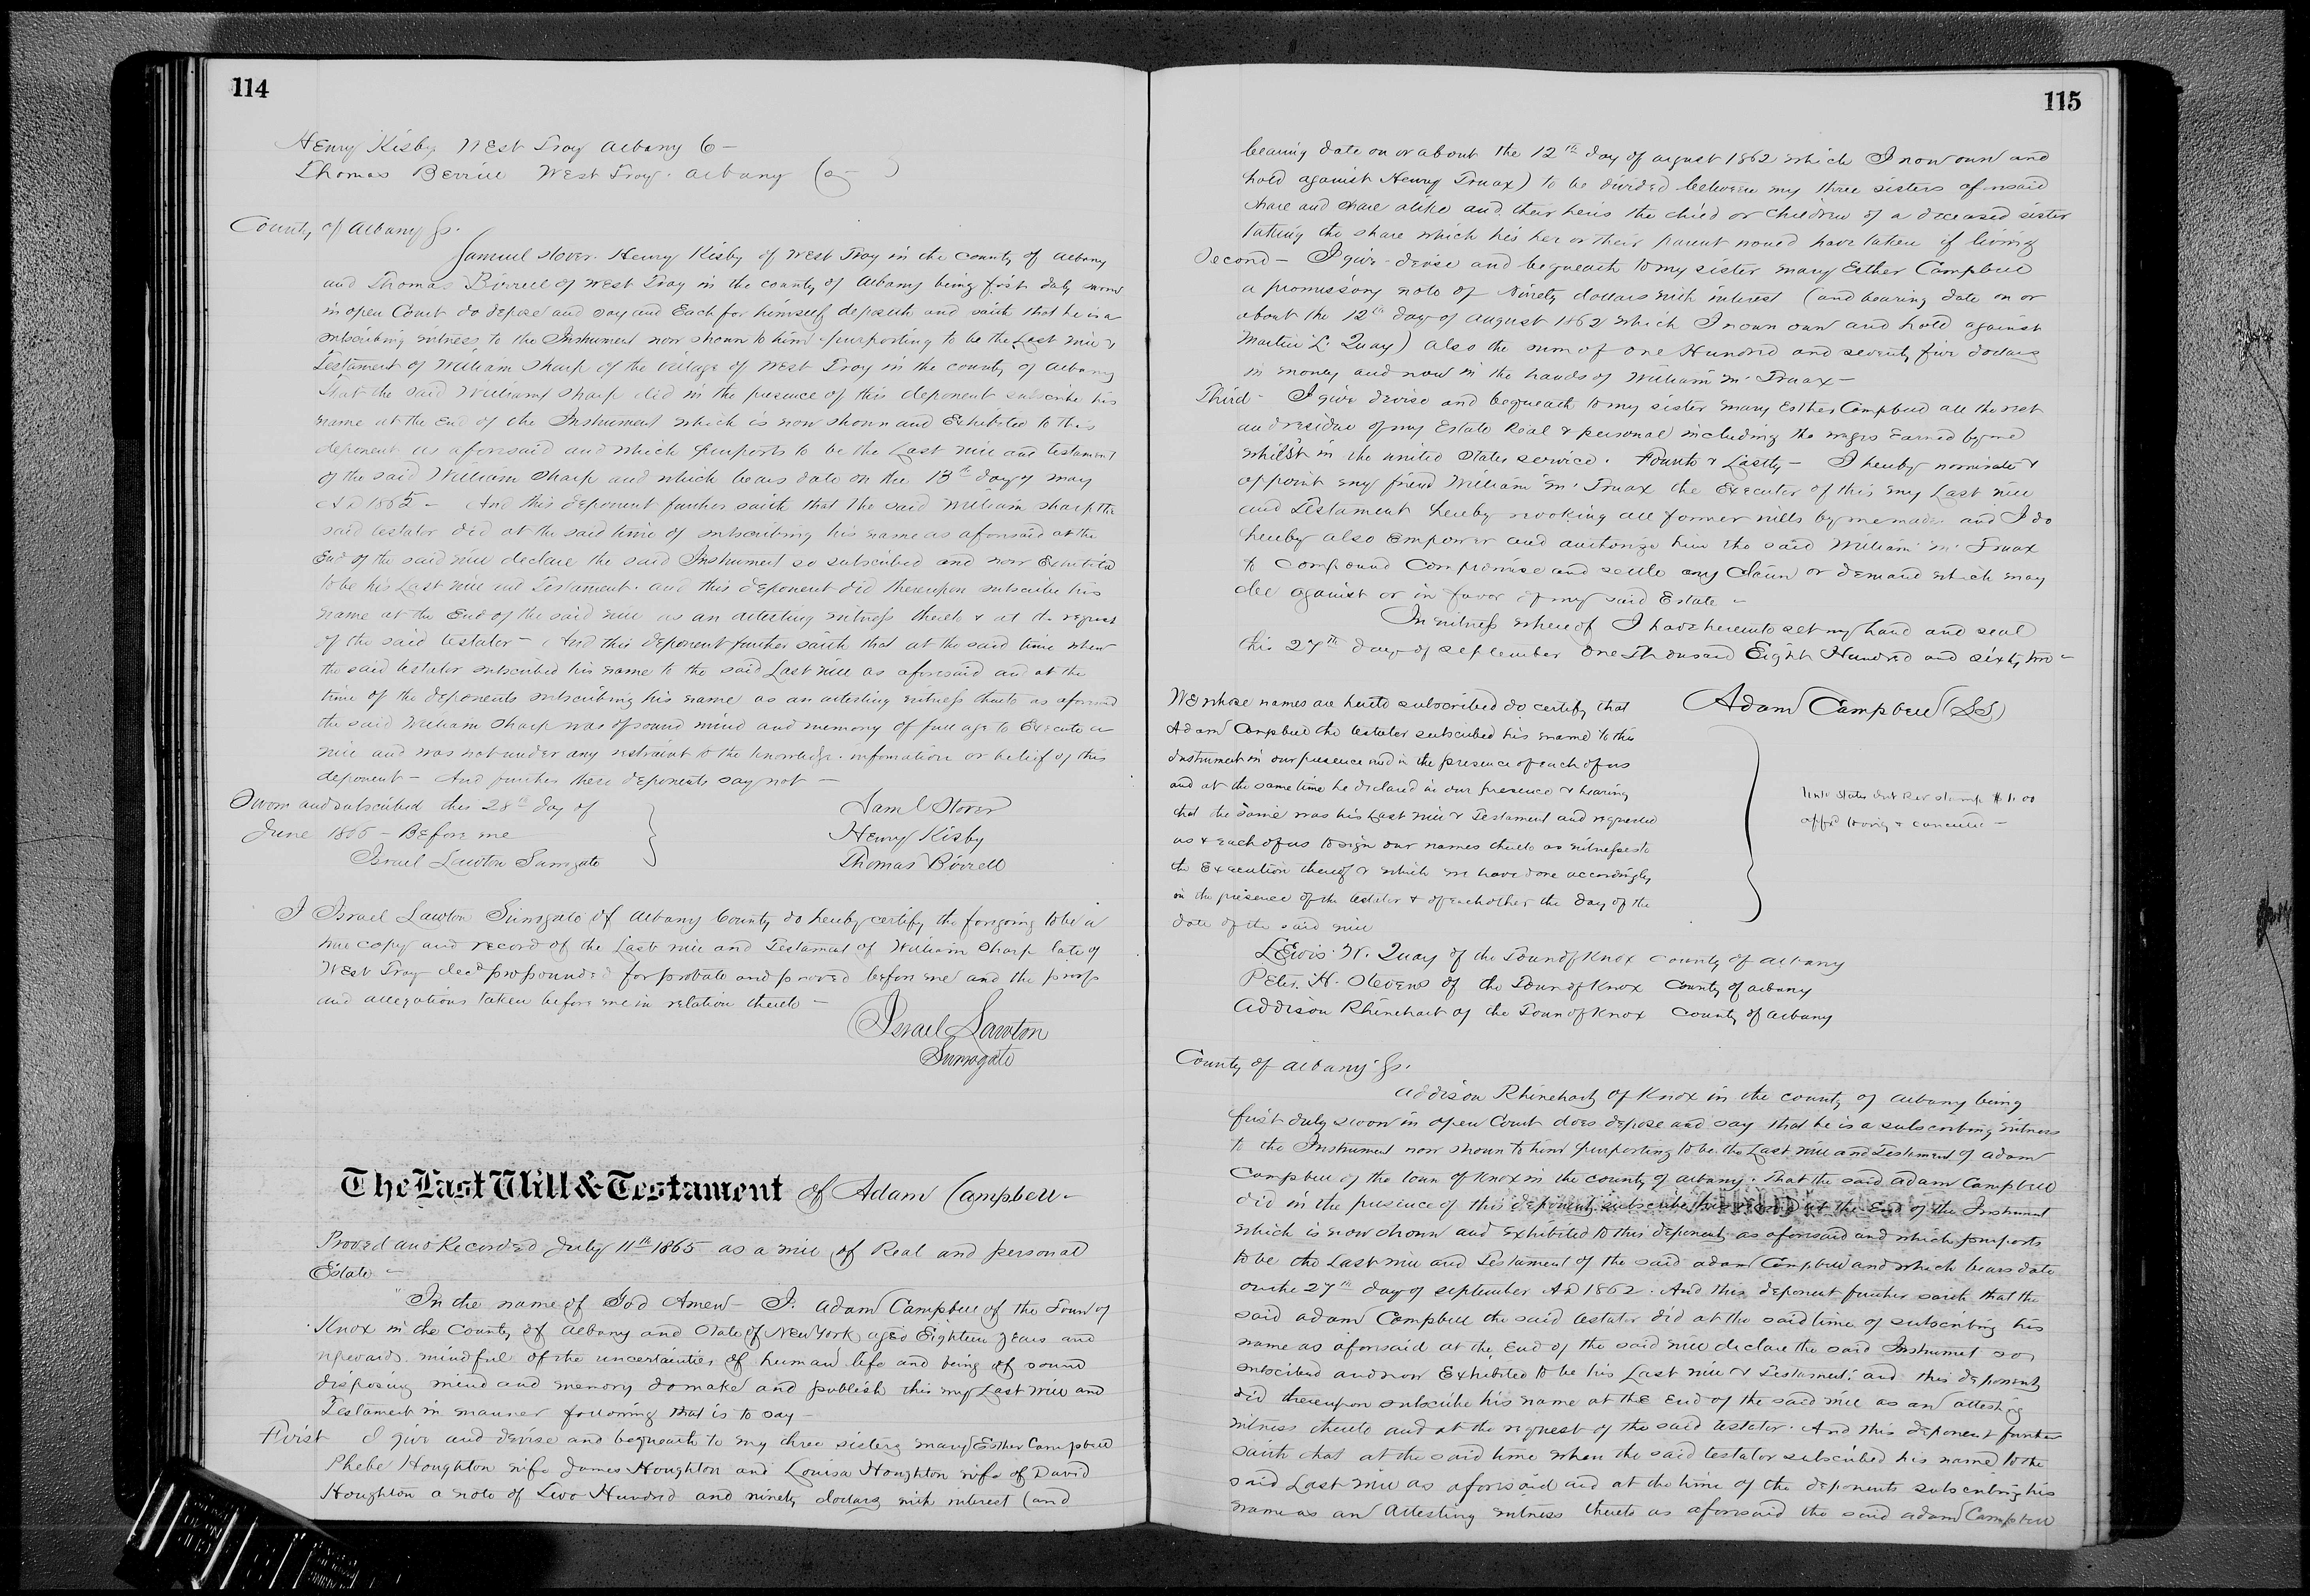 114
Henry Kisby West Troy Albany Co -
Thomas Berrill West Troy. Albany Co -
County of Albany Ss.
Samuel Stover. Henry Kisby of West Troy in the county of Albany
and Thomas Birrell of West Troy in the county of Albany being first duly sworn
in open Court do depose and say and Each for himself deposeth and saith that he is a
subscribing witness to the Instrument now shown to him purporting to be the Last Will &
Testament of William Sharp of the Village of West Troy in the county of Albany
That the said William Sharp did in the presence of this deponent subscribe his
name at the End of the Instrument which is now shown and Exhibited to this
deponent as aforesaid and which purports to be the Last Will and testament
of the said William Sharp and which bears date on the 13th day of May
AD 1865 - And this deponent further saith that the said William Sharp the
said testator did at the said time of subscribing his name as aforesaid at the
End of the said Will declare the said Instrument so subscribed and now Exhibited
to be his Last Will and Testament. and this deponent did thereupon subscribe his
name at the End of the said Will as an attesting witness thereto & at the request
of the said testator - And this deponent further saith that at the said time when
the said testator subscribed his name to the said Last Will as aforesaid and at the
time of the deponents subscribing his name as an attesting witness thereto as aforesaid
the said William Sharp was of sound mind and memory of full age to Execute a
Will and was not under any restraint to the knowledge. information or belief of this
deponent - And further these deponents say not -
Sworn and subscribed this 28th day of
June 1865 - Before me
Israel Lawton Surrogate
Saml Stover
Henry Kisby
Thomas Birrell
I Israel Lawton Surrogate of Albany County do hereby certify the foregoing to be a
true copy and record of the Last Will and Testament of William Sharp late of
West Troy decd propounded for probate and proved before me and the proofs
and allegations taken before me in relation thereto -
Israel Lawton
Surrogate
The Last Will & Testament of Adam Campbell -
Proved and Recorded July 11th 1865 as a Will of Real and personal
Estate -
"In the name of God Amen - I. Adam Campbell of the Town of
Knox in the County of Albany and State of New York aged Eighteen years and
upwards. mindful of the uncertainties of human life and being of sound
disposing mind and memory do make and publish this my Last Will and
Testament in manner following that is to say -
First I give and devise and bequeath to my three sisters Mary Esther Campbell
Phebe Houghton wife James Houghton and Louisa Houghton wife of David
Houghton a note of Two Hundred and ninety dollars with interest (and
115
bearing date on or about the 12th day of august 1862 which I now own and
hold against Henry Truax) to be divided between my three sisters aforesaid
share and share alike and their heirs the child or children of a deceased sister
taking the share which his her or their parent would have taken if living
Second - I give devise and bequeath to my sister Mary Esther Campbell
a promissory note of Ninety dollars with interest (and bearing date on or
about the 12th day of August 1862 which I now own and hold against
Martin L. Quay) also the sum of one Hundred and seventy five dollars
in money and now in the hands of William M. Truax -
Third - I give devise and bequeath to my sister Mary Esther Campbell all the rest
and residue of my Estate Real & personal including the wages Earned by me
whilst in the united States service. Fourth & Lastly - I hereby nominate &
appoint my friend William M. Truax the Executor of this my Last Will
and Testament hereby revoking all former wills by me made and I do
hereby also Empower and authorize him the said William M. Truax
to Compound Compromise and settle any Claim or demand which may
be against or in favor of my said Estate -
In witness whereof I have hereunto set my hand and seal
this 27th day of September One Thousand Eight Hundred and sixty two -
Adam Campbell (LS)
We whose names are hereto subscribed do certify that
Adam Campbell the testator subscribed his name to this
Instrument in our presence and in the presence of each of us
and at the same time he declared in our presence & hearing
that the same was his Last Will & Testament and requested
us & each of us to sign our names thereto as witnesses to
the Execution thereof & which we have done accordingly
in the presence of the testator & of each other the day of the
date of the said Will
Unit States Int Rev stamp $1.00
affd to orig & cancelled -
Lewis W. Quay of the Town of Knox County of Albany
Peter. H. Stevens of the Town of Knox County of Albany
Addison Rhinehart of the Town of Knox County of Albany
County of Albany Ss.
Addison Rhinehart of Knox in the county of Albany being
first duly sworn in open Court does depose and say that he is a subscribing witness
to the Instrument now shown to him purporting to be the Last Will and Testament of Adam
Campbell of the town of Knox in the county of Albany. That the said Adam Campbell
did in the presence of this deponent subscribe his name at the End of the Instrument
which is now shown and exhibited to this deponent as aforesaid and which purports
to be the Last Will and Testament of the said Adam Campbell and which bears date
on the 27th day of September AD 1862. And this deponent further saith that the
said Adam Campbell the said testator did at the said time of subscribing his
name as aforesaid at the End of the said Will declare the said Instrument so
subscribed and now Exhibited to be his Last Will & Testament. and this deponent
did thereupon subscribe his name at the End of the said Will as an attesting
witness thereto and at the request of the said testator. And this deponent further
saith that at the said time when the said testator subscribed his name to the
said Last Will as aforesaid and at the time of the deponents subscribing his
name as an Attesting witness thereto as aforesaid the said Adam Campbell